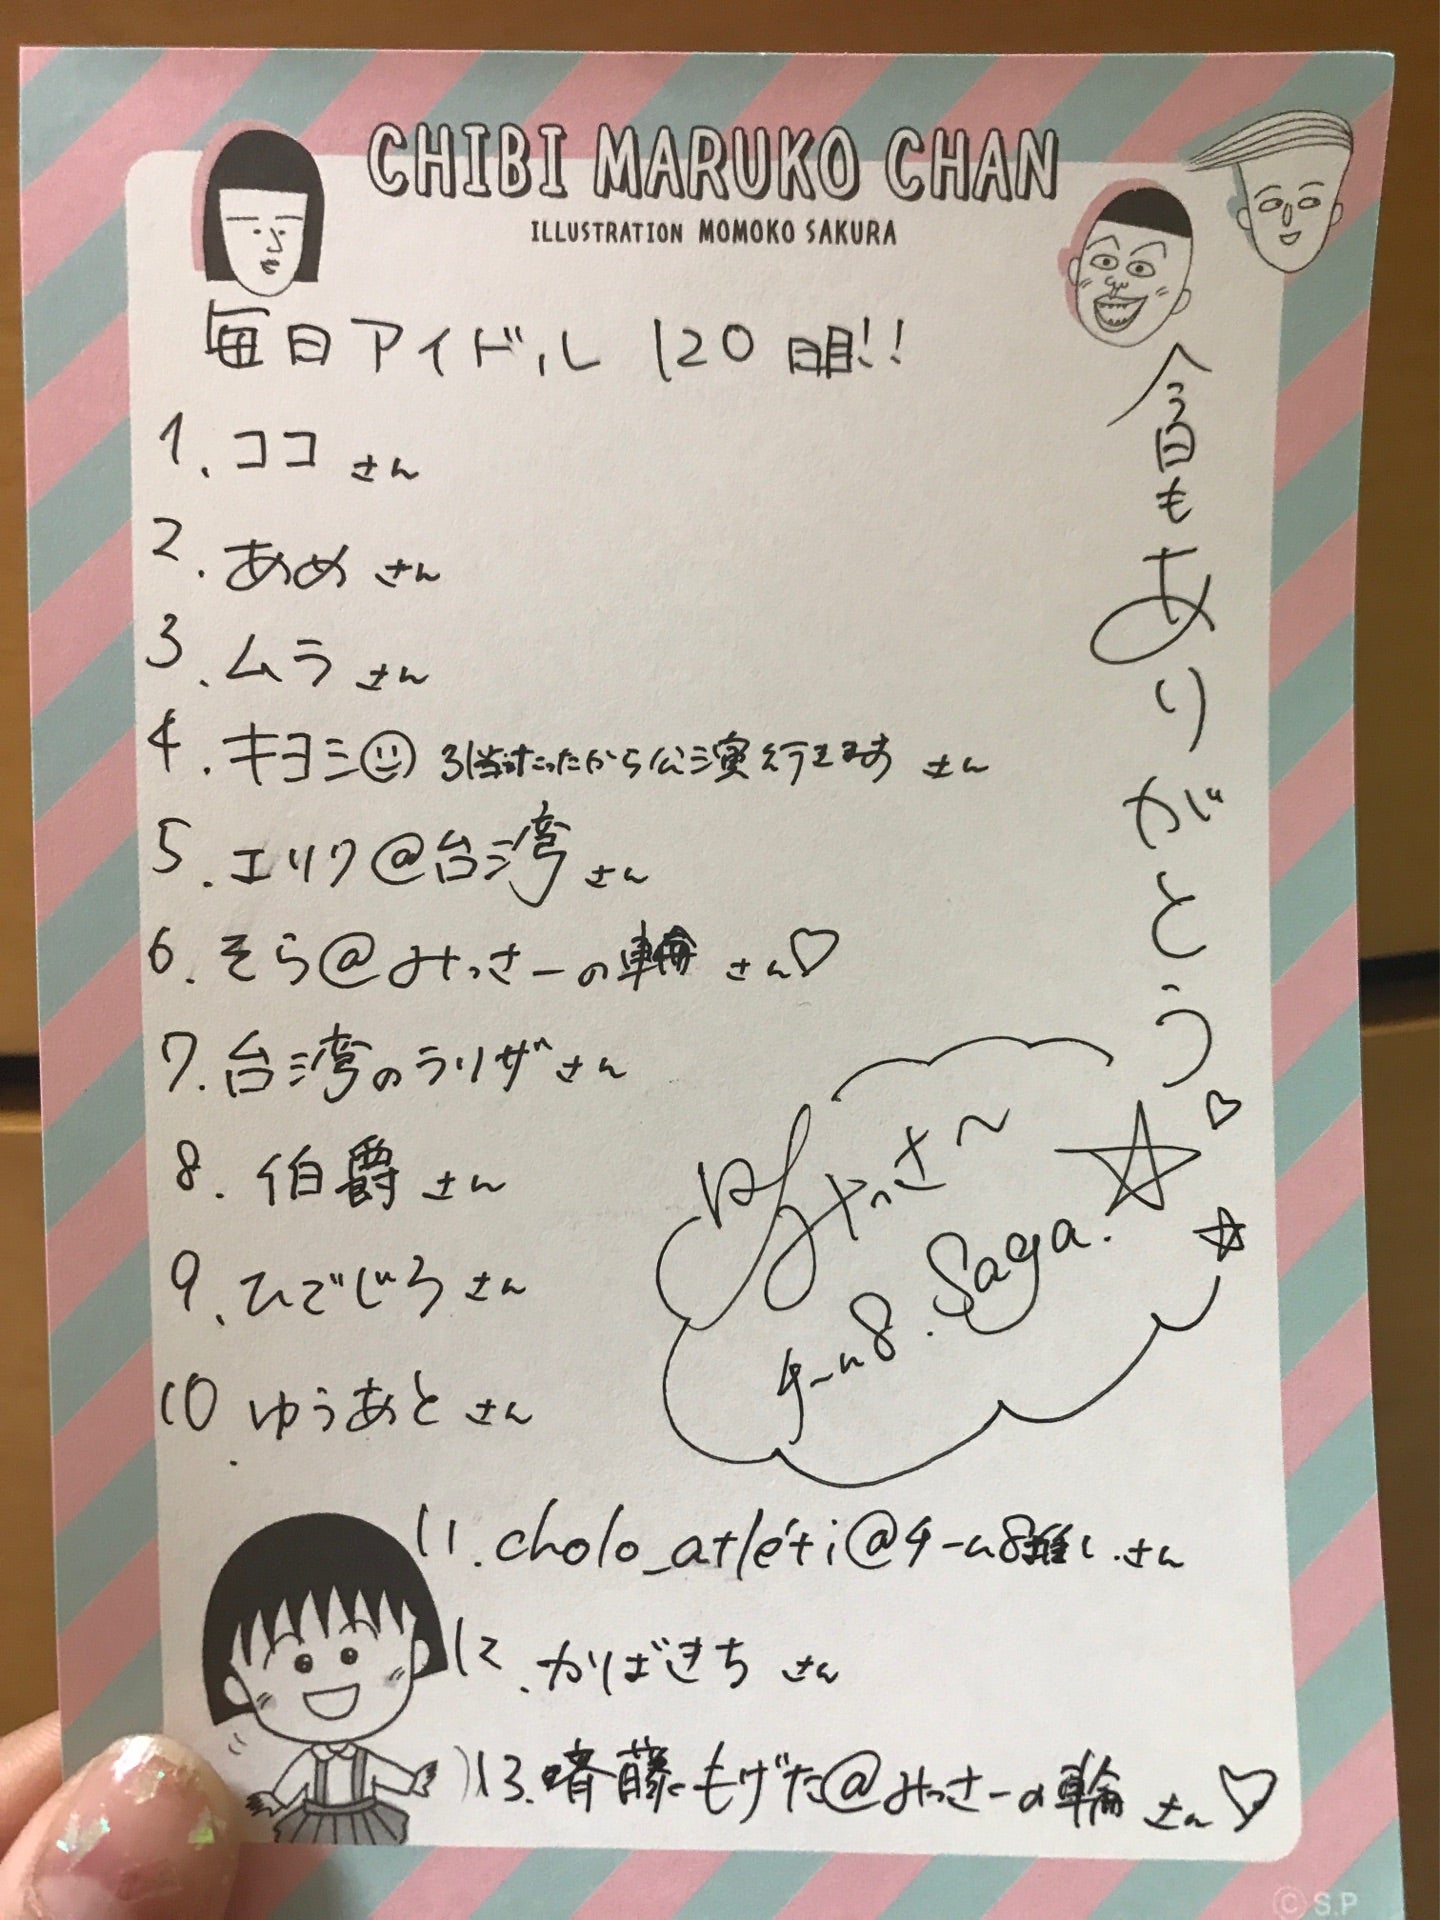 CHIBI MARUKO CHAN
ILLUSTRATION MOMOKO SAKURA
毎日アイドル 120日目!!
1. ココさん
2. あめさん
3. ムラさん
4. キヨシ☺ 引当たったから公演行きますさん
5. エリク@台湾さん
6. そら@みっさーの輪さん♡
7. 台湾のラリザさん
8. 伯爵さん
9. ひでじろさん
10. ゆうあとさん
11. cholo_atléti@チーム8推し.さん
12. かばきちさん
13. 斉藤もげた@みっさーの輪さん♡
今日もありがとう♡
みっさ〜☆
チーム8. Saga.☆
© S.P